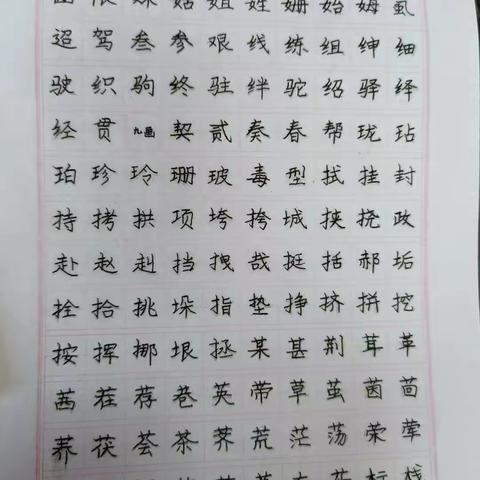 函 限 妹 姑 姐 姓 姗 始 姆 虱
迢 驾 叁 参 艰 线 练 组 绅 细
驶 织 驹 终 驻 绊 驼 绍 驿 绎
经 贯 九画 契 贰 奏 春 帮 珑 玷
珀 珍 玲 珊 玻 毒 型 拭 挂 封
持 拷 拱 项 垮 挎 城 挟 挠 政
赴 赵 赳 挡 拽 哉 挺 括 郝 垢
拴 拾 挑 垛 指 垫 挣 挤 拼 挖
按 挥 挪 垠 拯 某 甚 荆 茸 革
茜 茬 荐 巷 荚 带 草 茧 茵 茴
荞 茯 荟 茶 荠 荒 茫 荡 荣 荤